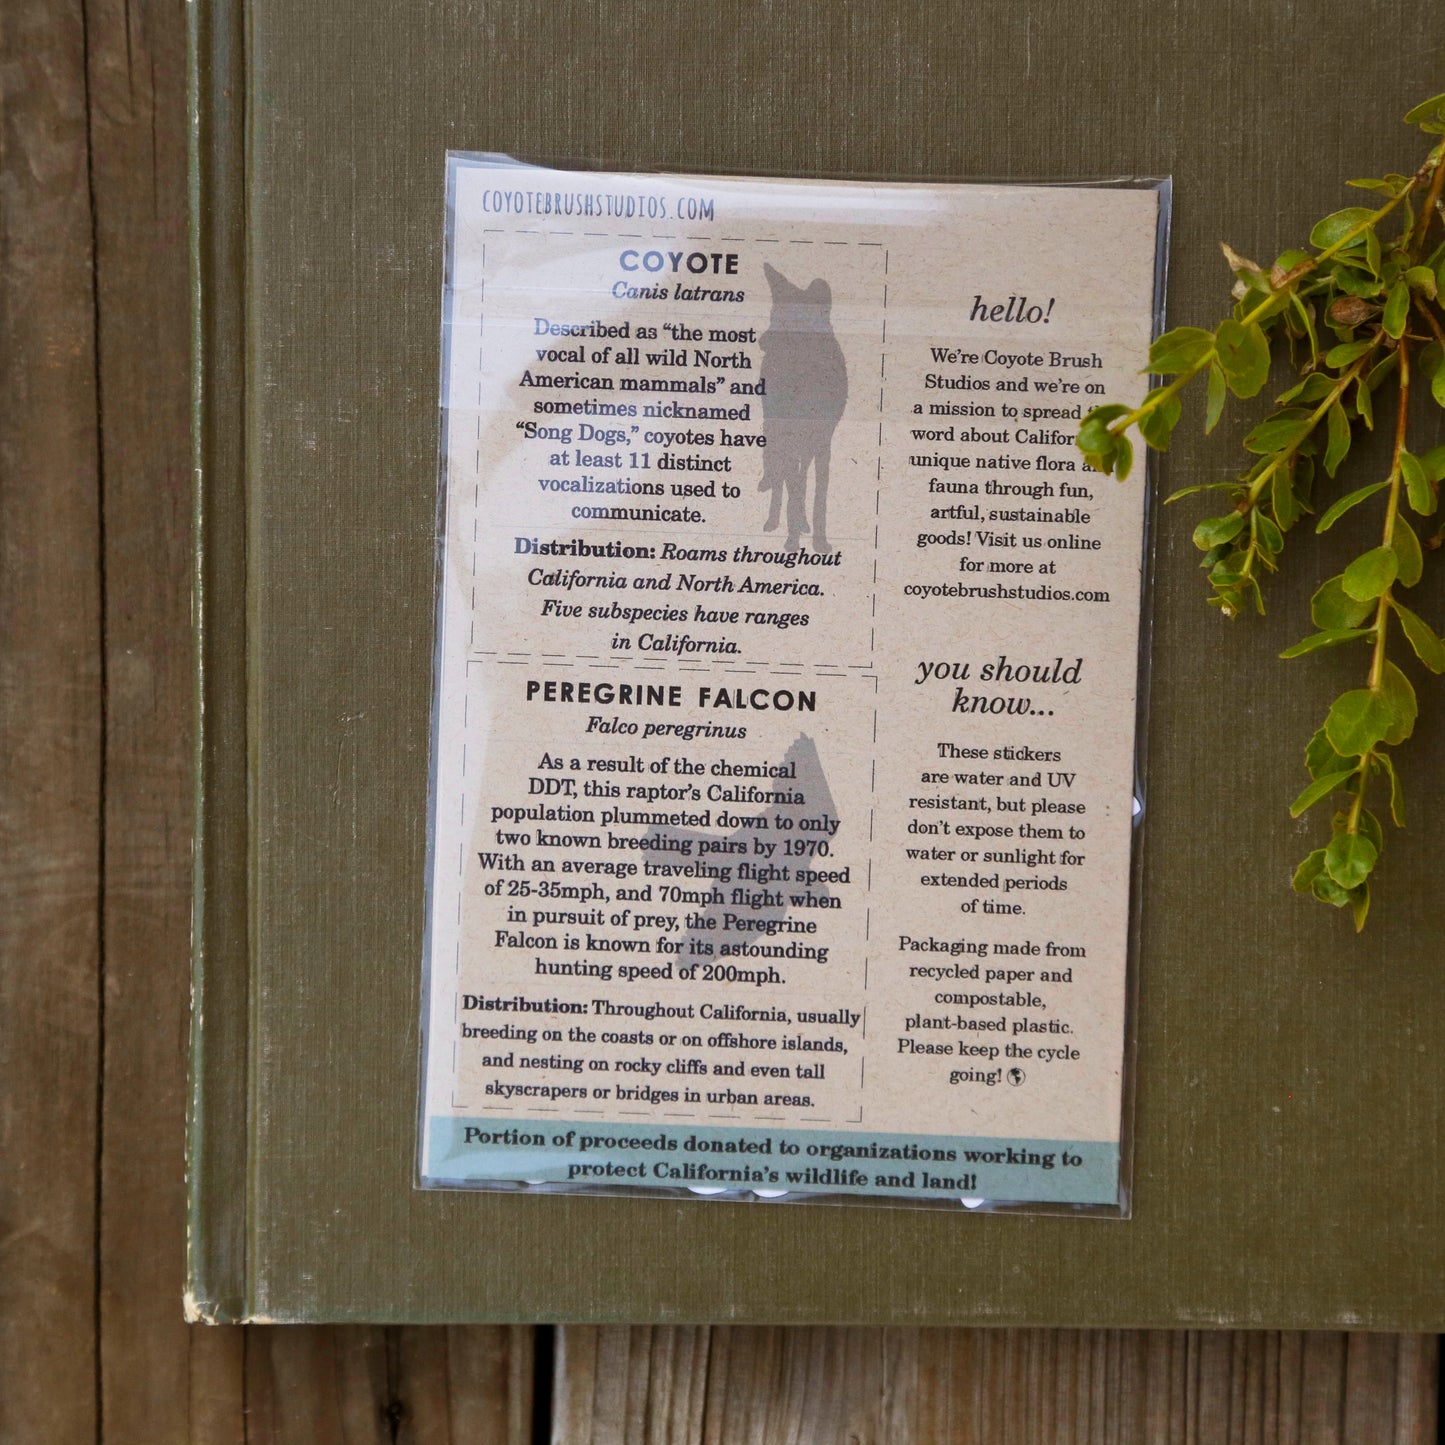 COYOTEBRUSHSTUDIOS.COM
COYOTE
Canis latrans
Described as “the most
vocal of all wild North
American mammals” and
sometimes nicknamed
“Song Dogs,” coyotes have
at least 11 distinct
vocalizations used to
communicate.
Distribution: Roams throughout
California and North America.
Five subspecies have ranges
in California.
PEREGRINE FALCON
Falco peregrinus
As a result of the chemical
DDT, this raptor’s California
population plummeted down to only
two known breeding pairs by 1970.
With an average traveling flight speed
of 25-35mph, and 70mph flight when
in pursuit of prey, the Peregrine
Falcon is known for its astounding
hunting speed of 200mph.
Distribution: Throughout California, usually
breeding on the coasts or on offshore islands,
and nesting on rocky cliffs and even tall
skyscrapers or bridges in urban areas.
hello!
We’re Coyote Brush
Studios and we’re on
a mission to spread
word about
unique native flora
fauna through fun,
artful, sustainable
goods! Visit us online
for more at
coyotebrushstudios.com
you should
know...
These stickers
are water and UV
resistant, but please
don’t expose them to
water or sunlight for
extended periods
of time.
Packaging made from
recycled paper and
compostable,
plant-based plastic.
Please keep the cycle
going!
Portion of proceeds donated to organizations working to
protect California’s wildlife and land!